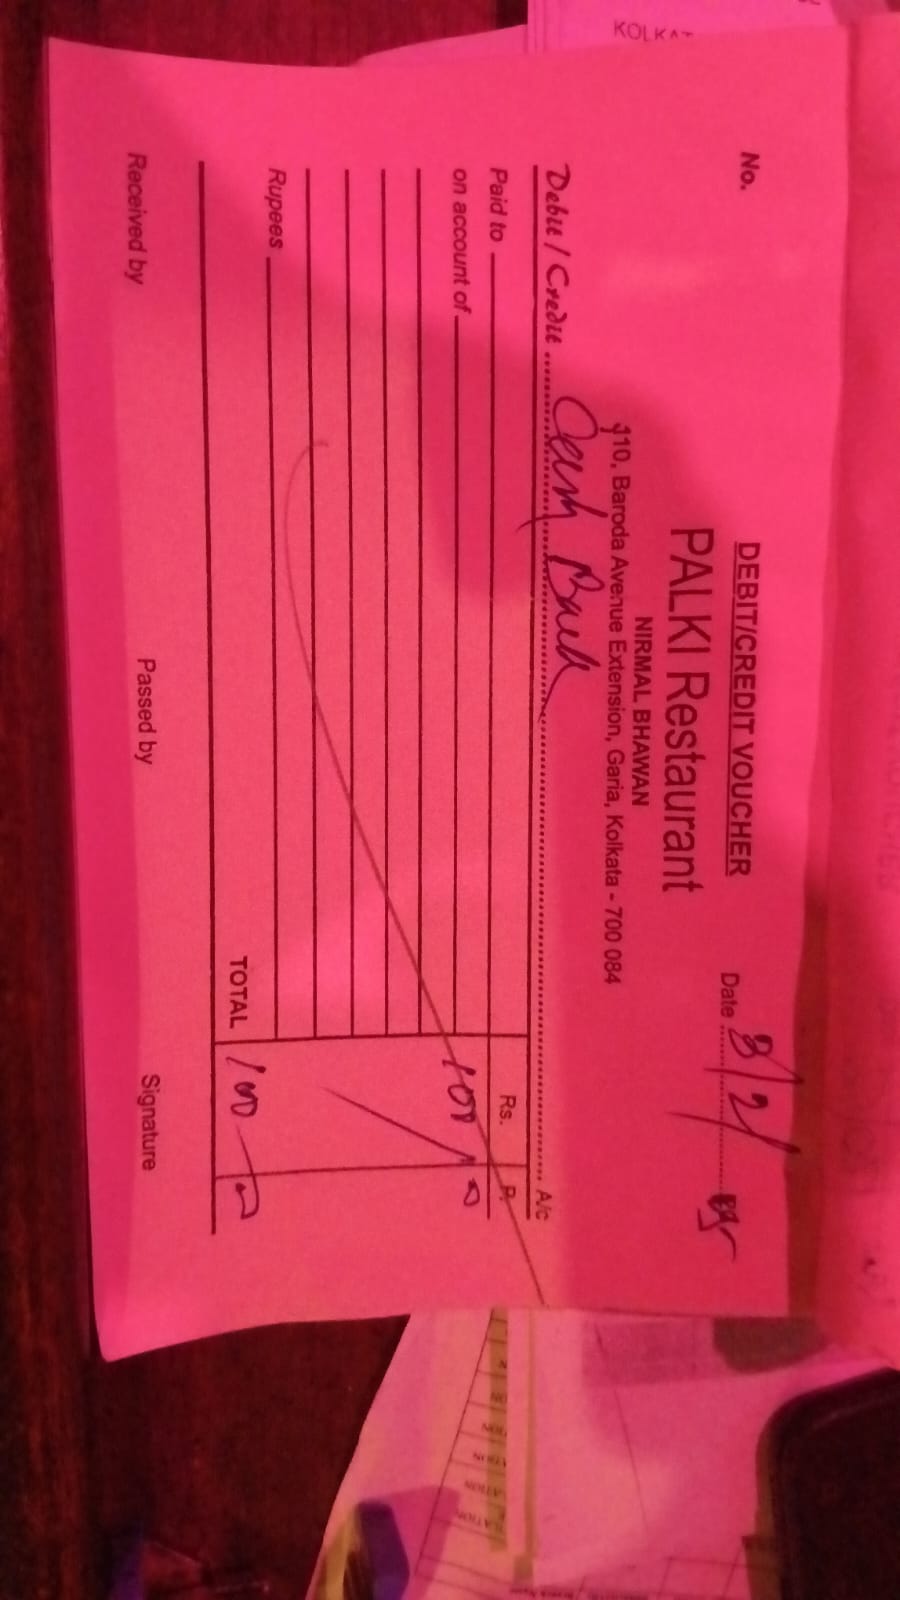 KOLKAT
DEBIT/CREDIT VOUCHER
No.
Date 3/2/
PALKI Restaurant
NIRMAL BHAWAN
110, Baroda Avenue Extension, Garia, Kolkata - 700 084
Debit / Credit Cash Back A/c
Paid to Rs. P.
on account of 100
Rupees
TOTAL 100
Received by Passed by Signature